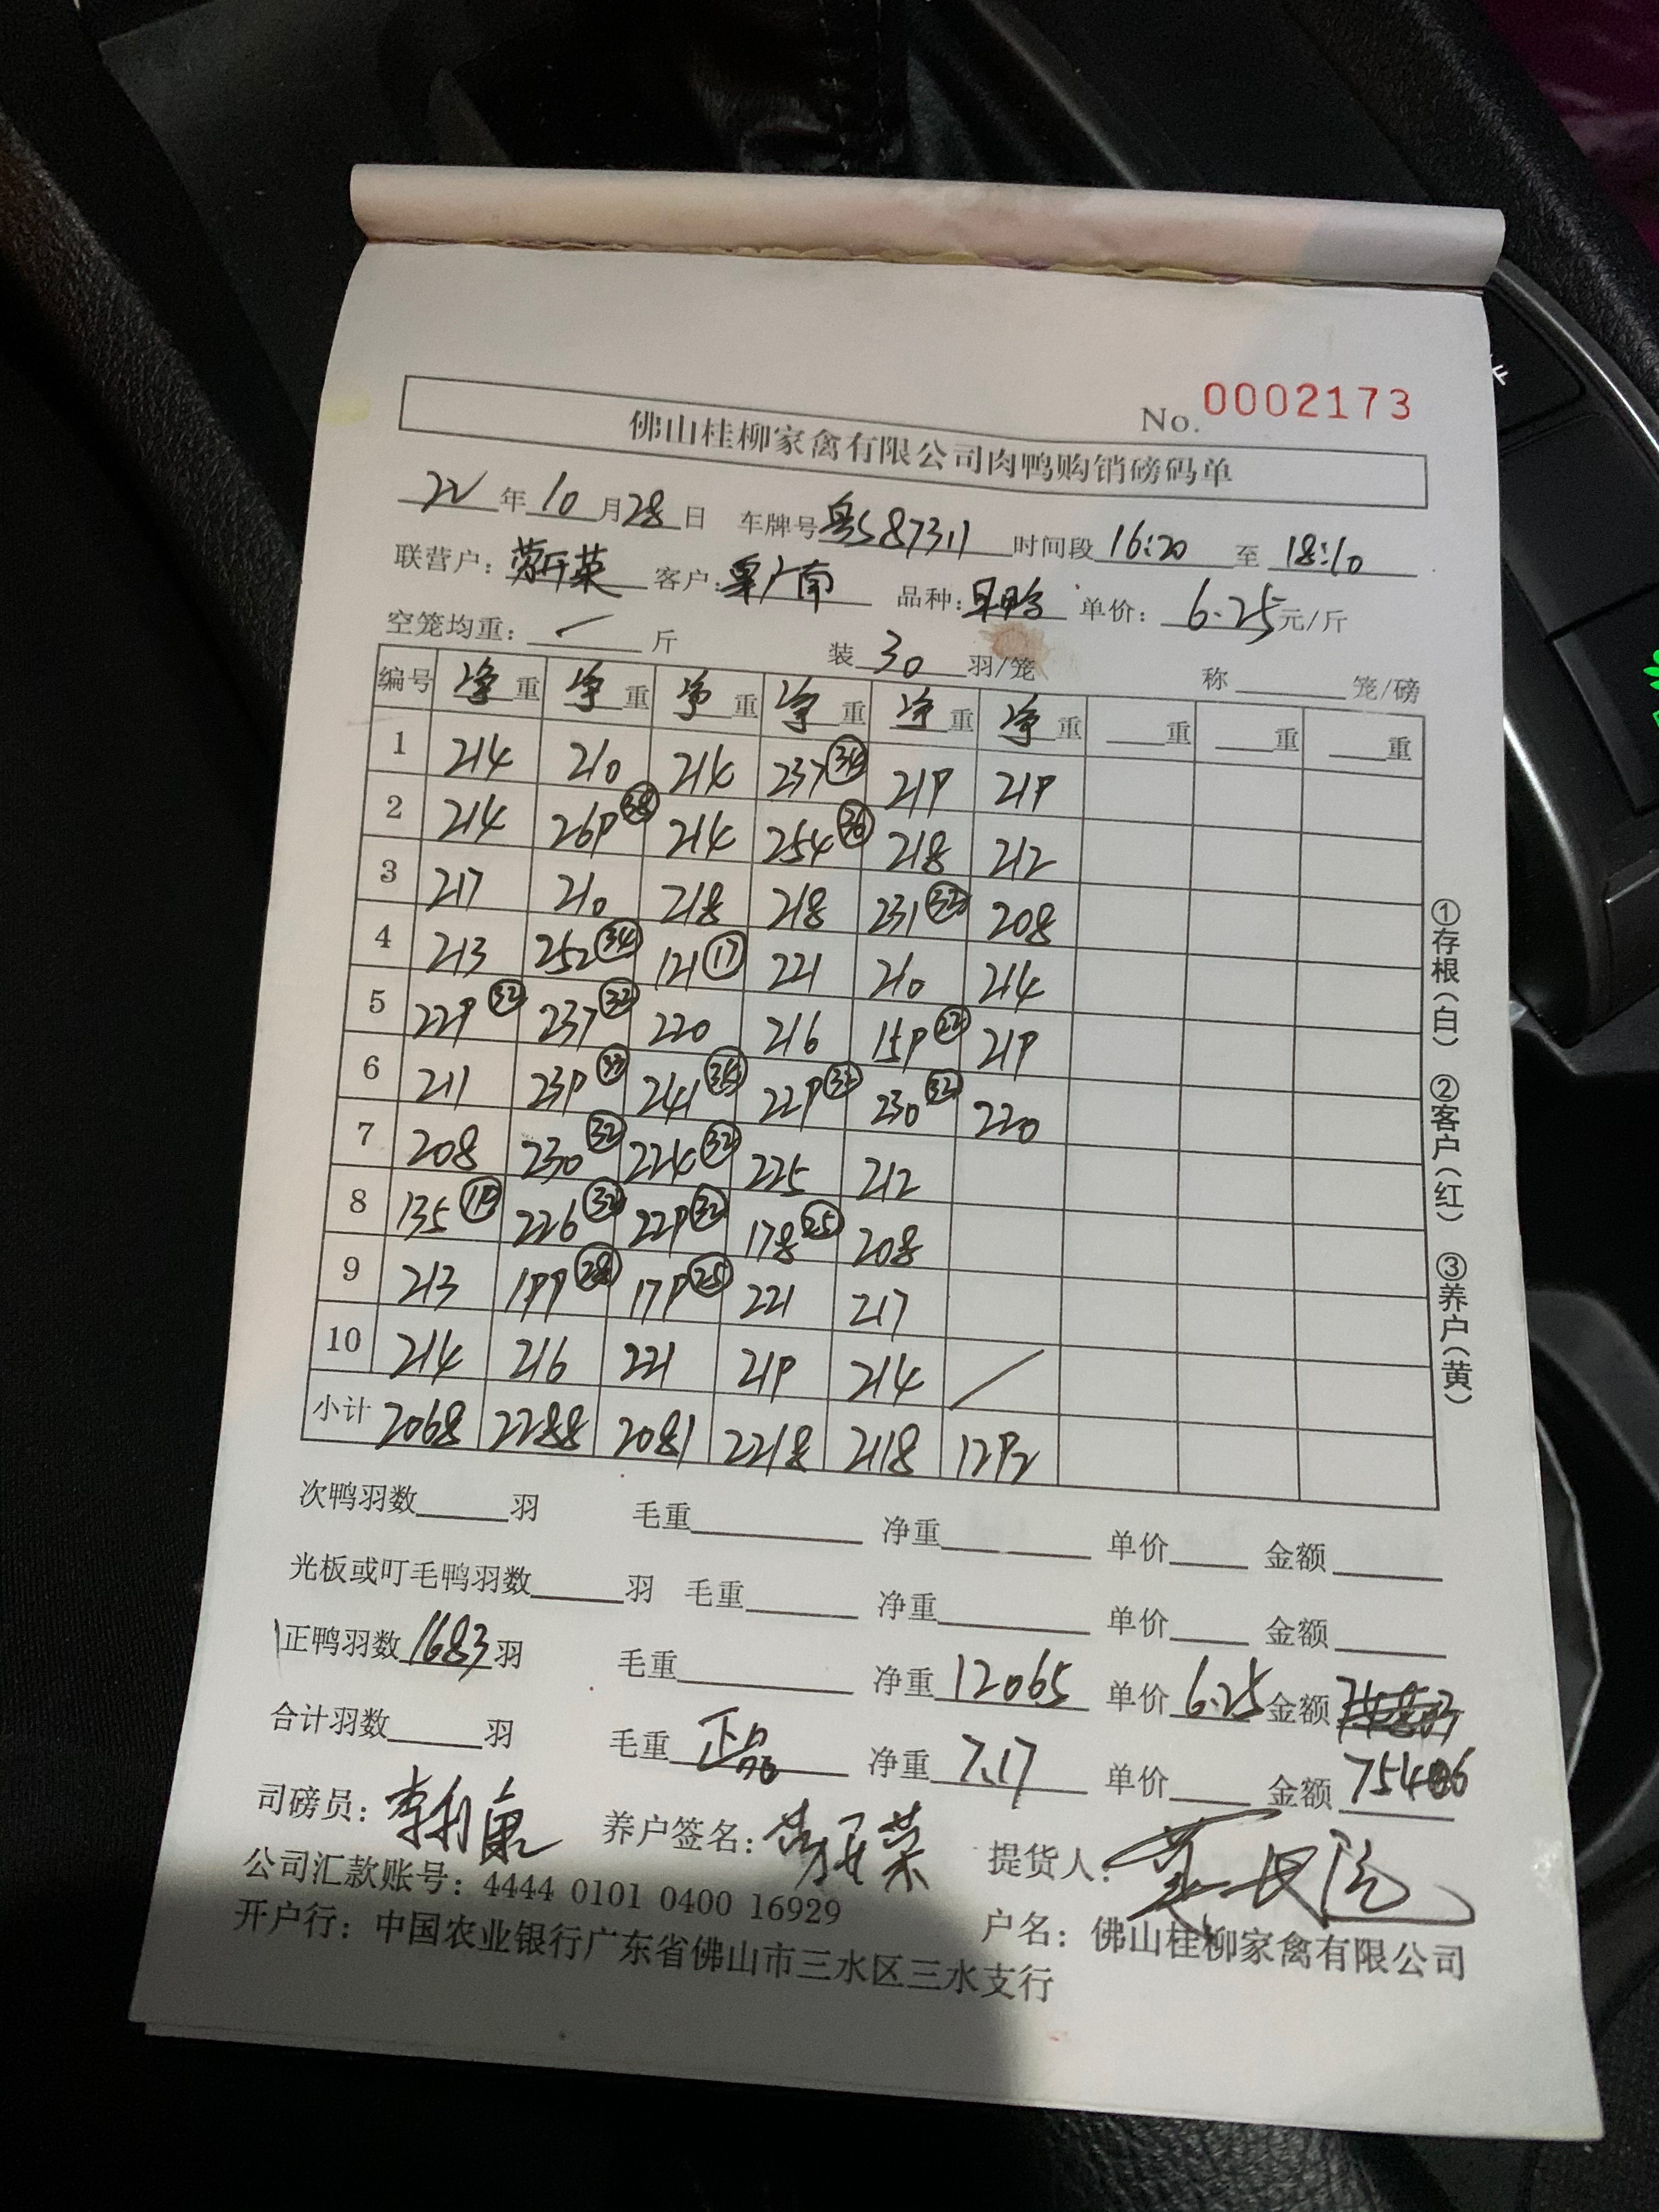 No. 0002173
佛山桂柳家禽有限公司肉鸭购销磅码单
22年10月28日 车牌号粤S87311 时间段16:20至18:10
联营户: 客户:覃广南 品种: 单价:6.25元/斤
空笼均重:/斤 装30羽/笼 称 笼/磅
编号 净重 净重 净重 净重 净重 净重 重 重 重
1 214 210 214 237 219 219
2 214 269 38 214 254 36 218 212
3 217 210 218 218 231 32 208
4 213 252 34 121 17 221 210 214
5 229 32 237 32 220 216 159 22 219
6 211 239 33 241 229 230 32 220
7 208 230 32 224 32 225 212
8 135 19 226 32 229 32 178 25 208
9 213 199 28 179 25 221 217
10 214 216 221 219 214 /
小计 2068 2288 2081 2218 2118 1292
次鸭羽数 羽 毛重 净重 单价 金额
光板或叮毛鸭羽数 羽 毛重 净重 单价 金额
正鸭羽数1683羽 毛重 净重12065 单价6.25 金额
合计羽数 羽 毛重正品 净重7.17 单价 金额75406
司磅员: 养户签名: 提货人:
公司汇款账号:4444 0101 0400 16929 户名:佛山桂柳家禽有限公司
开户行:中国农业银行广东省佛山市三水区三水支行
①存根(白) ②客户(红) ③养户(黄)